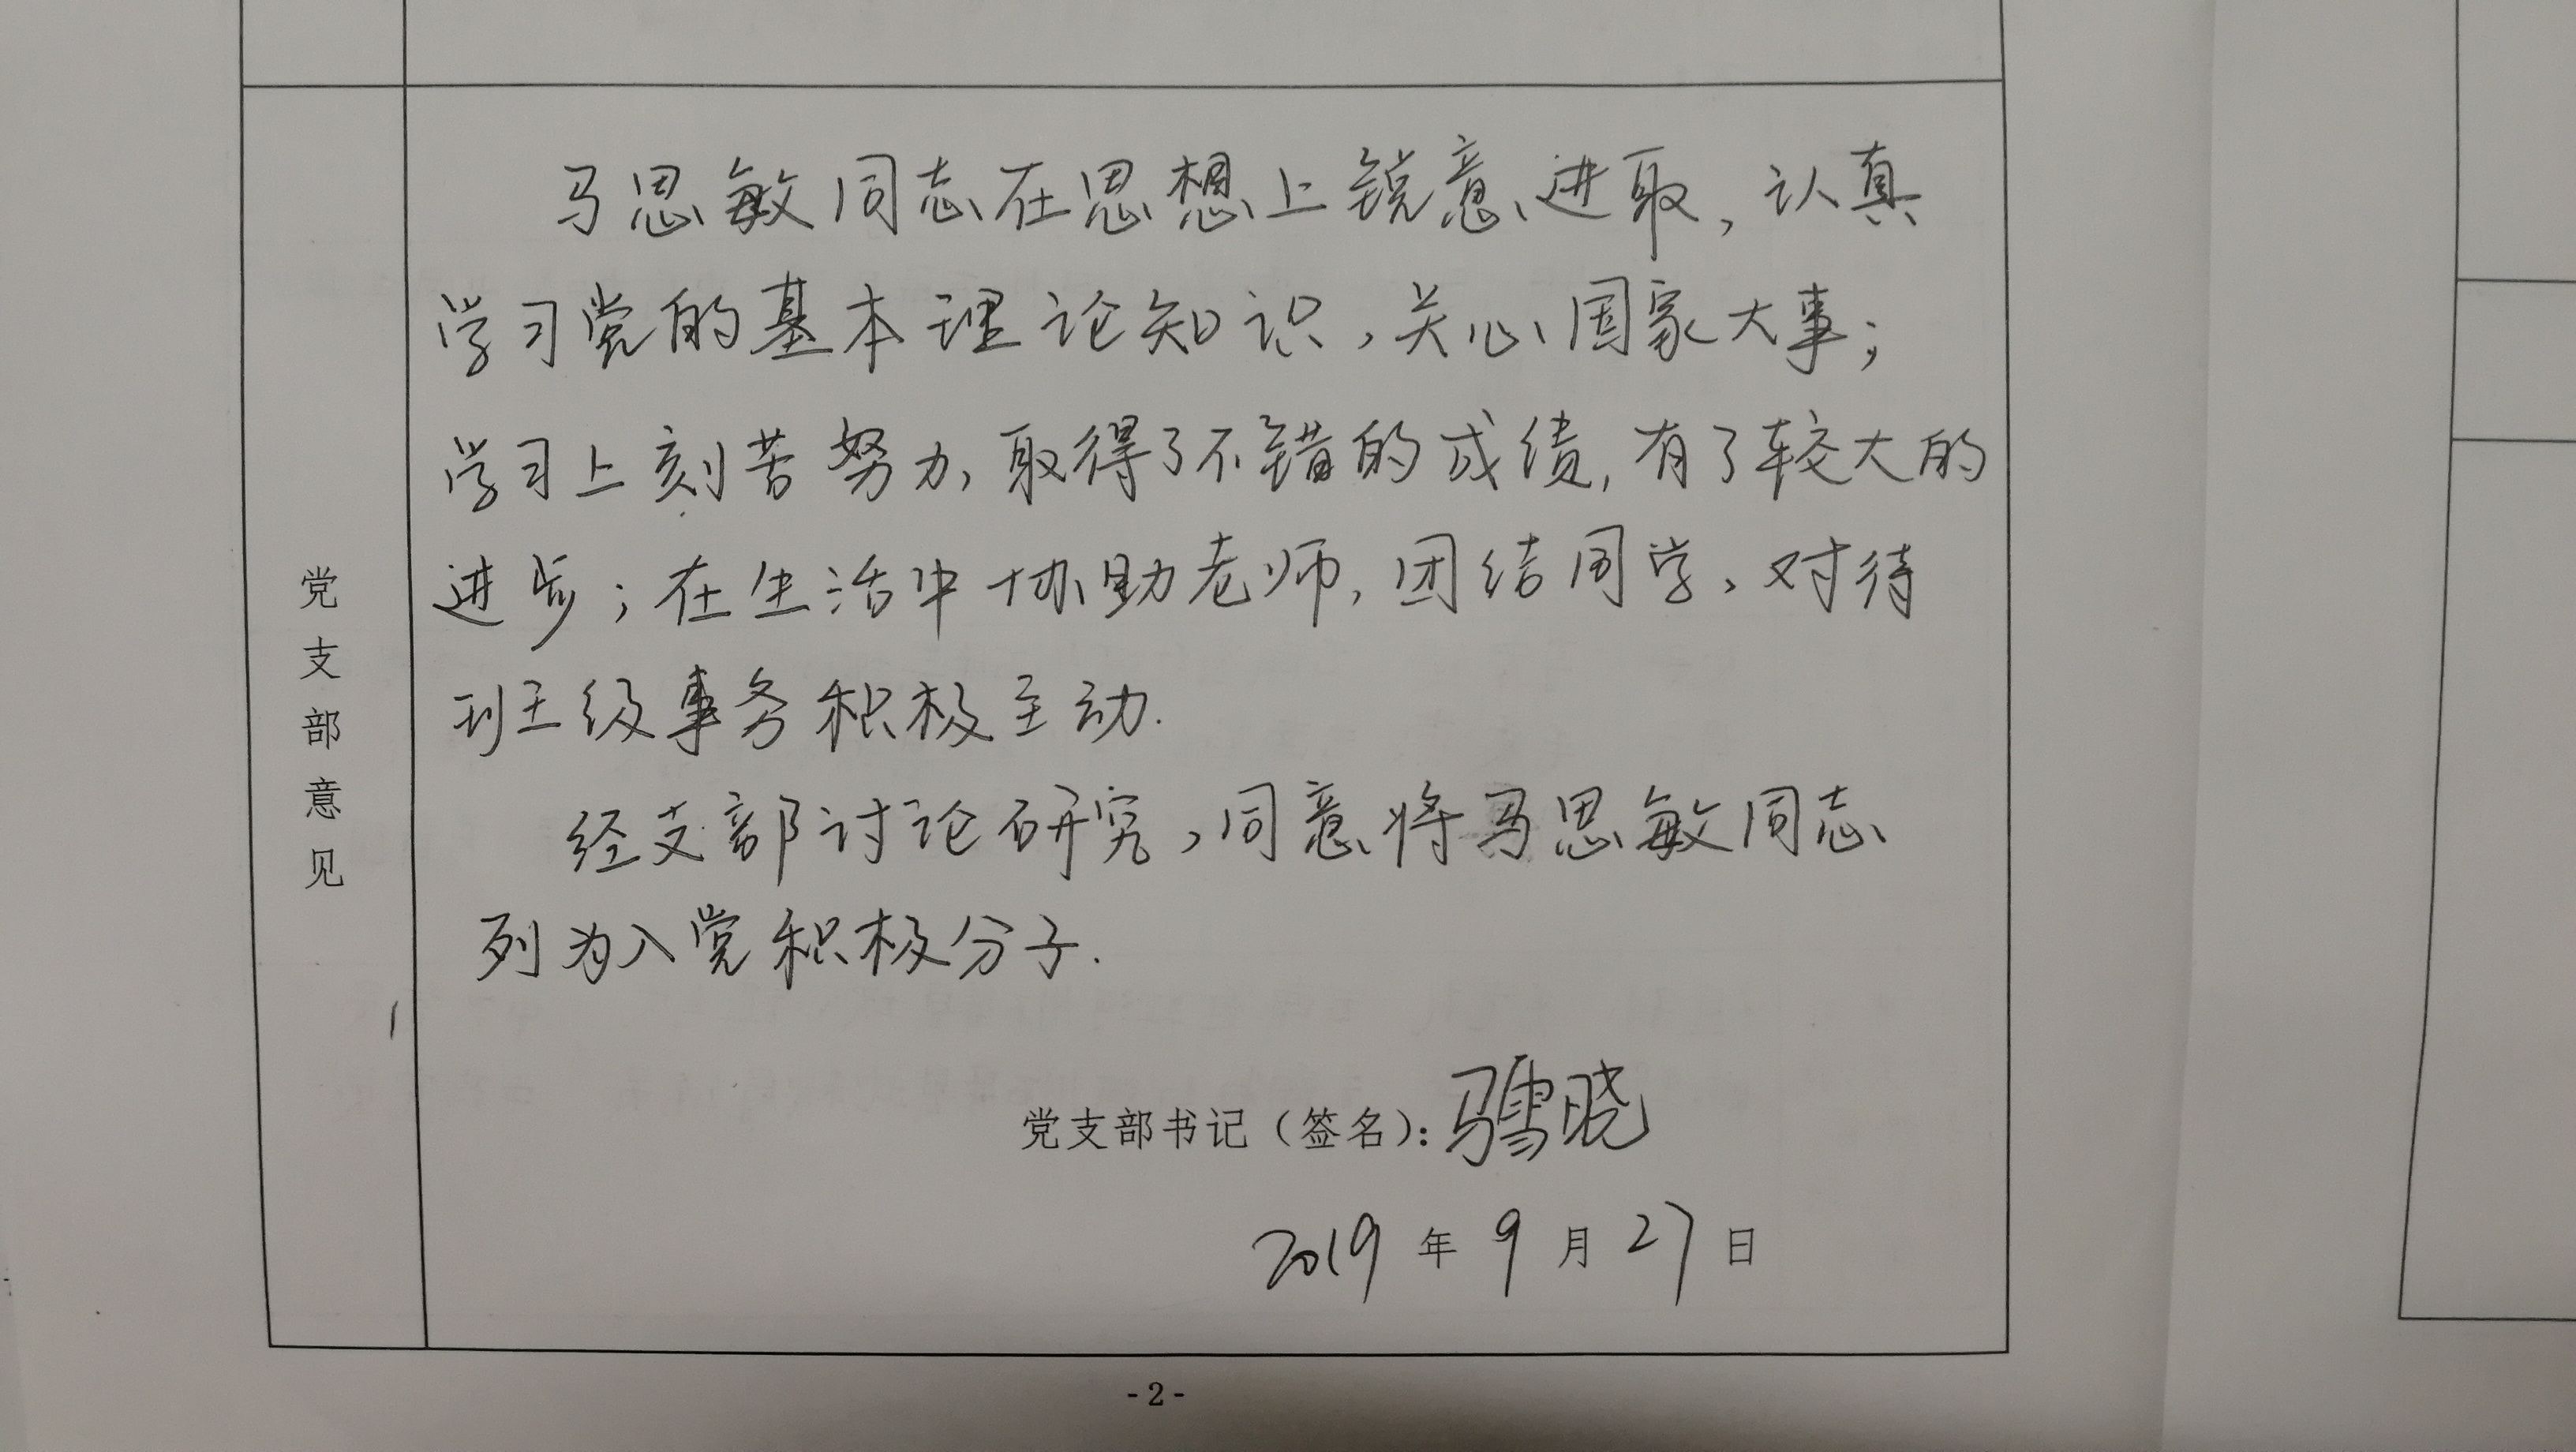 党支部意见
马思敏同志在思想上锐意进取，认真
学习党的基本理论知识，关心国家大事；
学习上刻苦努力，取得了不错的成绩，有了较大的
进步；在生活中协助老师，团结同学，对待
班级事务积极主动.
经支部讨论研究，同意将马思敏同志
列为入党积极分子.
党支部书记（签名）：马雪晓
2019年9月27日
- 2 -